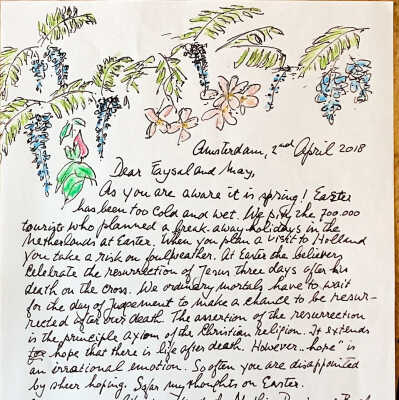 Amsterdam, 2nd April 2018
Dear Faysal and May,
As you are aware it is spring! Easter
has been too cold and wet. We pity the 700.000
tourists who planned a break away holidays in the
Netherlands at Easter. When you plan a visit to Holland
you take a risk on foul weather. At Easter the believers
celebrate the resurrection of Jesus three days after his
death on the cross. We ordinary mortals have to wait
for the day of judgement to make a chance to be resur-
rected after our death. The assertion of the resurrection
is the principle axiom of the Christian religion. It extends
hope that there is life after death. However "hope" is
an irrational emotion. So often you are disappointed
by sheer hoping. So far my thoughts on Easter.